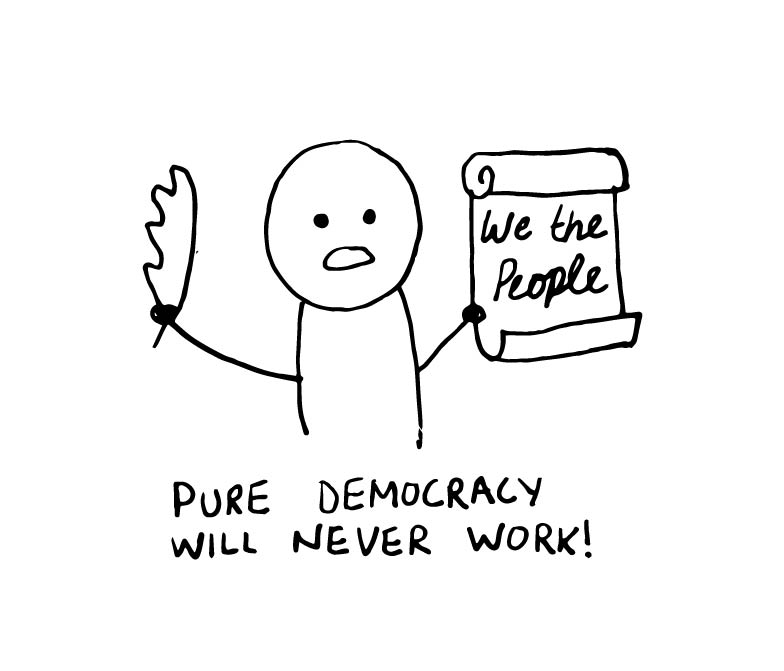 We the
People
PURE DEMOCRACY
WILL NEVER WORK!